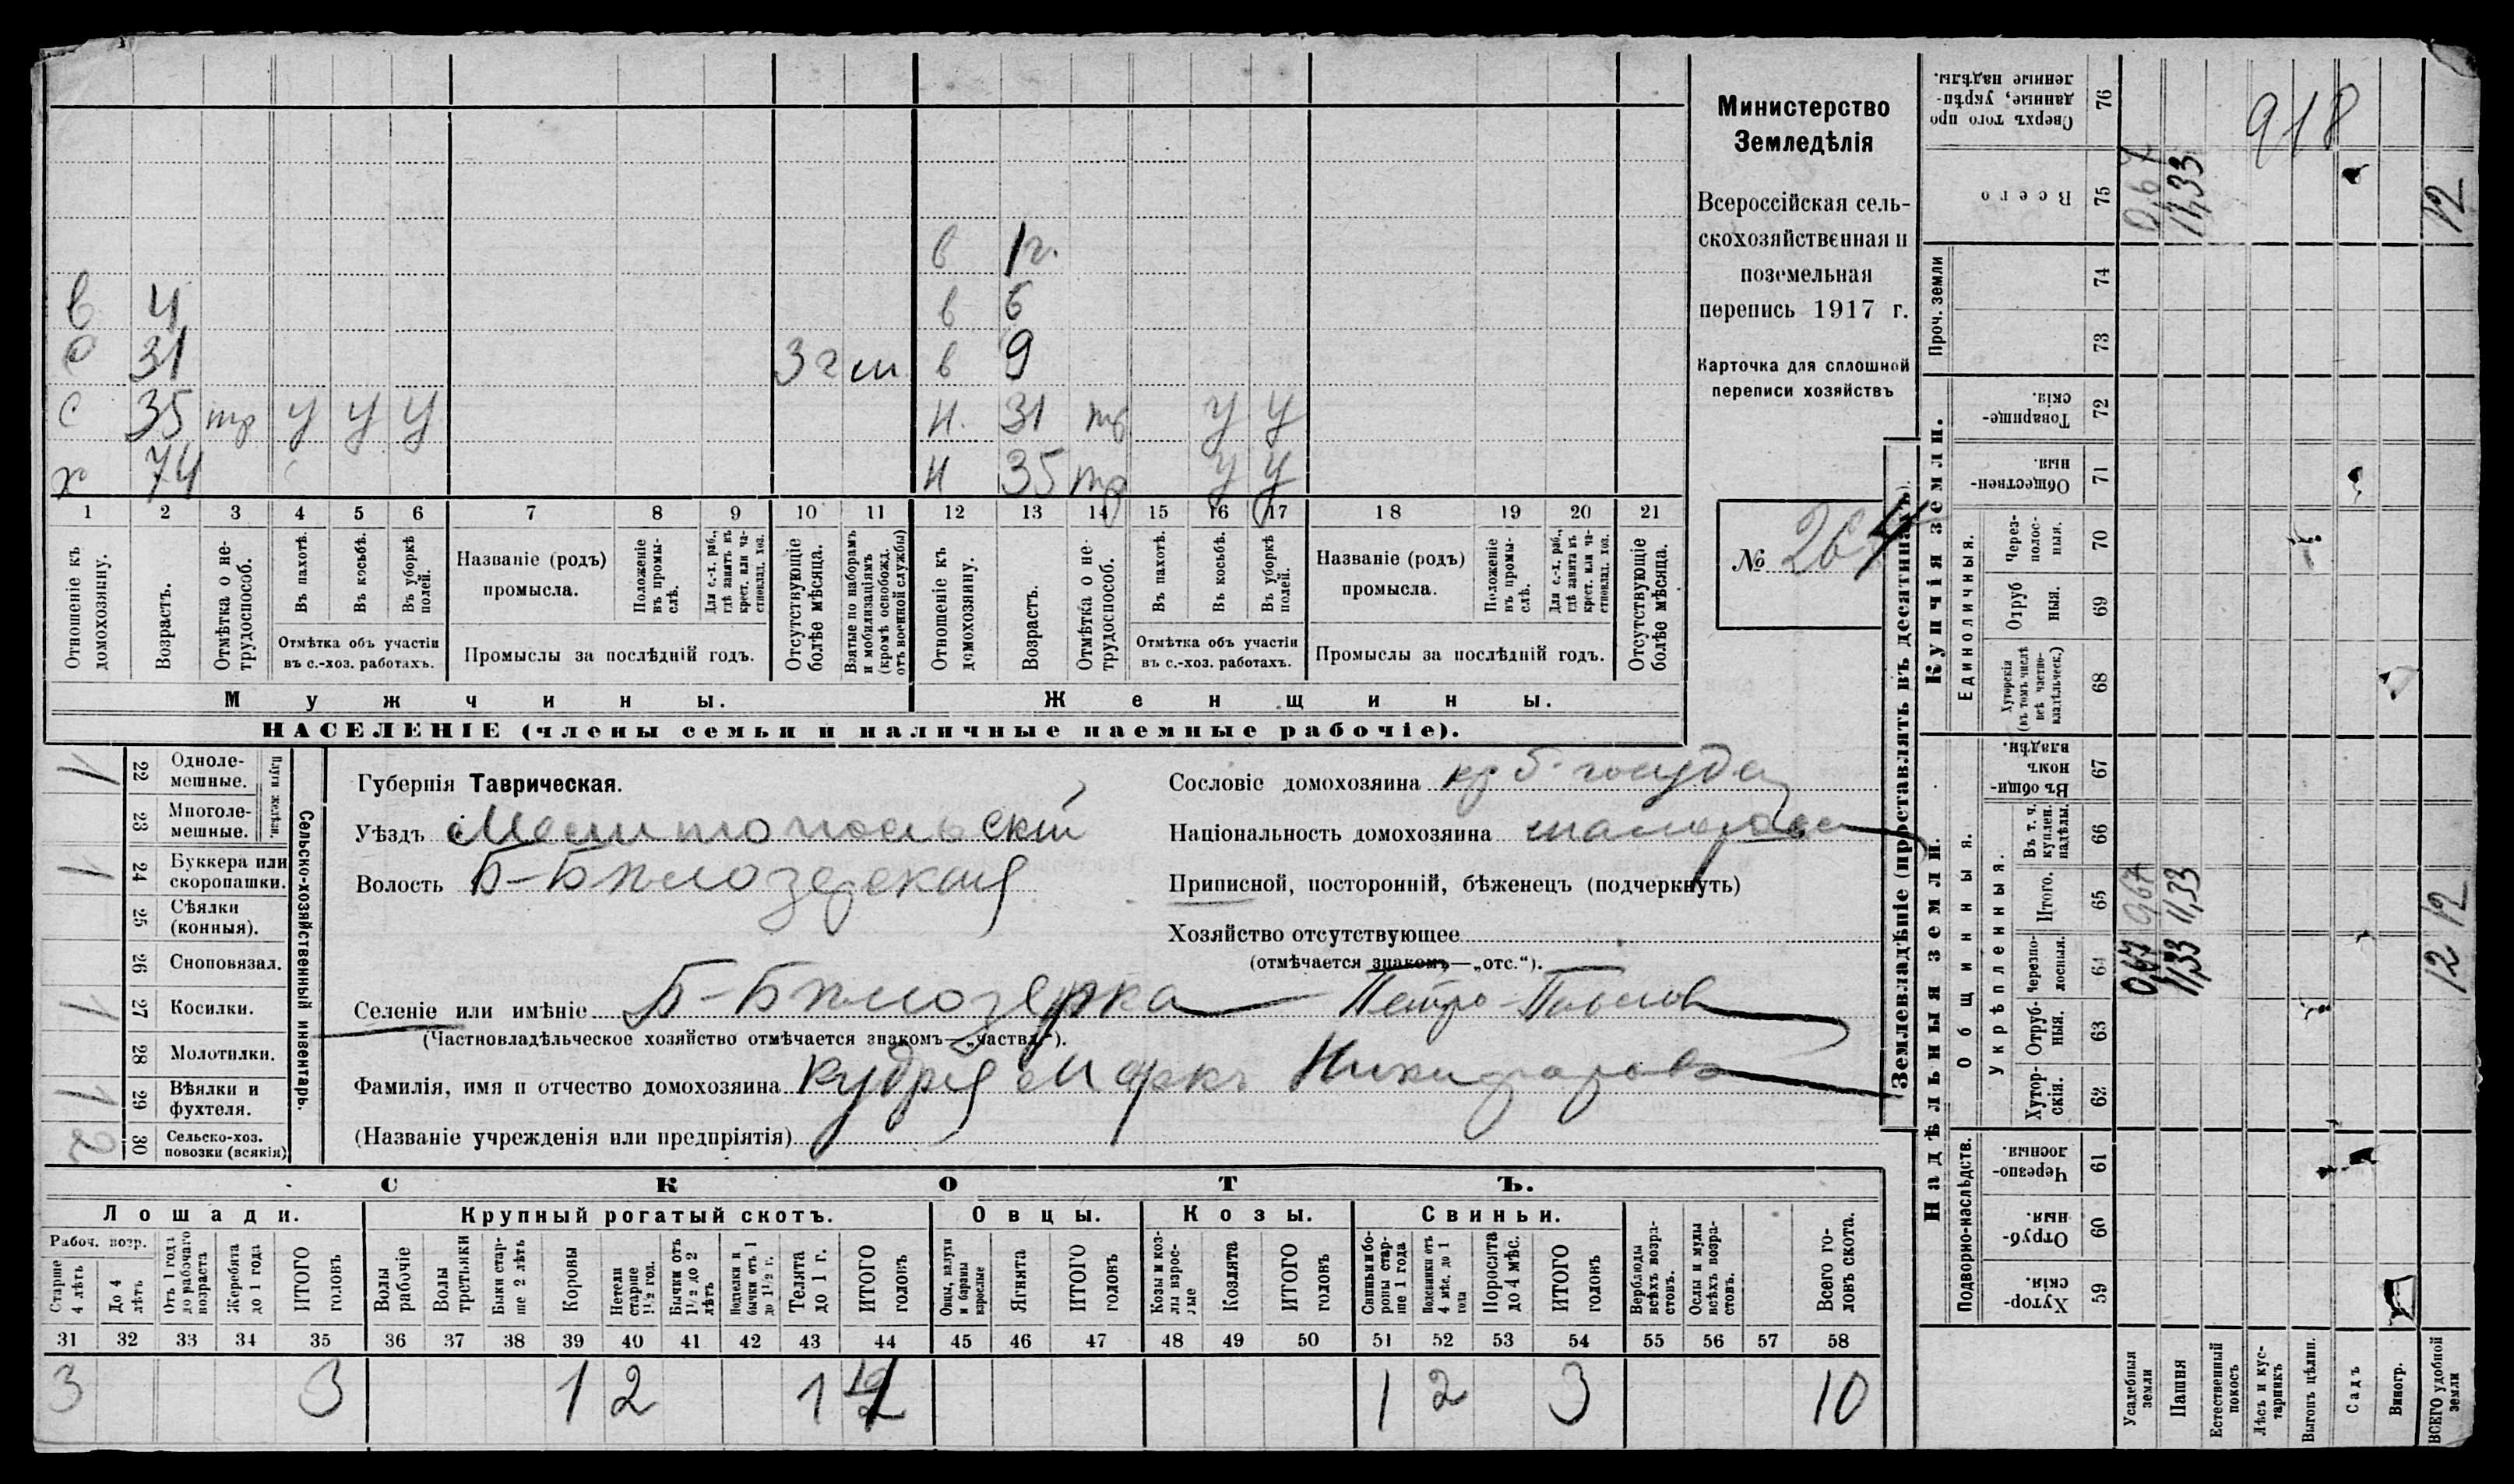 в 1 г.
в 4 в 6
с 31 3 г м в 9
с 35 тр у у у н. 31 тр у у
х 74 н 35 тр у у
1 2 3 4 5 6 7 8 9 10 11 12 13 14 15 16 17 18 19 20 21
Отношеніе къ домохозяину.
Возрастъ.
Отмѣтка о не-трудоспособ.
Въ пахотѣ.
Въ косьбѣ.
Въ уборкѣ полей.
Отмѣтка объ участіи
въ с.-хоз. работахъ.
Названіе (родъ)
промысла.
Положеніе въ промы-слѣ.
Для с.-х. раб., гдѣ занятъ въ крест. или ча-стновлад. хоз.
Промыслы за послѣдній годъ.
Отсутствующіе болѣе мѣсяца.
Взятые по наборамъ и мобилизаціямъ (кромѣ освобожд. отъ военной службы)
Отношеніе къ домохозяину.
Возрастъ.
Отмѣтка о не-трудоспособ.
Въ пахотѣ.
Въ косьбѣ.
Въ уборкѣ полей.
Отмѣтка объ участіи
въ с.-хоз. работахъ.
Названіе (родъ)
промысла.
Положеніе въ промы-слѣ.
Для с.-х. раб., гдѣ занята въ крест. или ча-стновлад. хоз.
Промыслы за послѣдній годъ.
Отсутствующіе болѣе мѣсяца.
Мужчины. Женщины.
НАСЕЛЕНІЕ (члены семьи и наличные наемные рабочіе).
Министерство
Земледѣлія
Всероссійская сель-
скохозяйственная и
поземельная
перепись 1917 г.
Карточка для сплошной
переписи хозяйствъ
№ 264
Сельско-хозяйственный инвентарь.
Плуги желѣзн.
1 22 Однолемешные.
23 Многолемешные.
1 24 Буккера или скоропашки.
25 Сѣялки (конныя).
26 Сноповязал.
1 27 Косилки.
28 Молотилки.
1 29 Вѣялки и фухтеля.
2 30 Сельско-хоз. повозки (всякія)
Губернія Таврическая.
Уѣздъ Мелитопольскій
Волость Б-Бѣлозерская
Сословіе домохозяина кр б. госуда
Національность домохозяина малоросс
Приписной, посторонній, бѣженец (подчеркнуть)
Хозяйство отсутствующее
(отмѣчается знакомъ—„отс.“).
Селеніе или имѣніе Б-Бѣлозерка Петро-Павлов
(Частновладѣльческое хозяйство отмѣчается знакомъ—„частвл.“).
Фамилія, имя и отчество домохозяина Кудря Маркъ Никифоров
(Названіе учрежденія или предпріятія)
СКОТЪ.
Лошади. Крупный рогатый скотъ. Овцы. Козы. Свиньи.
Рабоч. возр.
Старше 4 лѣтъ
До 4 лѣтъ
Отъ 1 года до рабочаго возраста
Жеребята до 1 года
ИТОГО головъ
Волы рабочіе
Волы третьяки
Быки стар-ше 2 лѣтъ
Коровы
Нетели старше 1½ год.
Бычки отъ 1½ до 2 лѣтъ
Подтелки и бычки отъ 1 до 1½ г.
Телята до 1 г.
ИТОГО головъ
Овцы, валухи и бараны взрослые
Ягнята
ИТОГО головъ
Козы и коз-лы взрос-лые
Козлята
ИТОГО головъ
Свиньи и бо-ровы стар-ше 1 года
Подсвинки отъ 4 мѣс. до 1 года
Поросята до 4 мѣс.
ИТОГО головъ
Верблюды всѣхъ возра-стовъ.
Ослы и мулы всѣхъ возра-стовъ.
Всего го-ловъ скота.
31 32 33 34 35 36 37 38 39 40 41 42 43 44 45 46 47 48 49 50 51 52 53 54 55 56 57 58
3 3 1 2 1 4 1 2 3 10
Землевладѣніе (проставлять въ десятинахъ).
Купчія земли.
Надѣльныя земли.
Проч. земли
Единоличныя.
Общинныя.
Укрѣпленныя.
Подворно-наслѣдств.
Сверхъ того про данные, укрѣп-ленные надѣлы. 76 918
Всего 75 0,67 11,33 12
74
73
Товарище-скія. 72
Обществен-ныя. 71
Через-полос-ныя. 70
Отруб ныя. 69
Хуторскія (въ томъ числѣ всѣ частно-владѣльческ.) 68
Въ общин-номъ владѣн. 67
Въ т. ч. куплен. надѣлы. 66
Итого. 65 0,67 11,33 12
Черезпо-лосныя. 64 0,67 11,33 12
Отруб-ныя. 63
Хутор-скія. 62
Черезпо-лосныя. 61
Отруб-ныя. 60
Хутор-скія. 59
Усадебныя земли
Пашня
Естественный покосъ
Лѣсъ и кус-тарникъ
Выгонъ цѣлин.
Садъ
Виногр.
ВСЕГО удобной земли